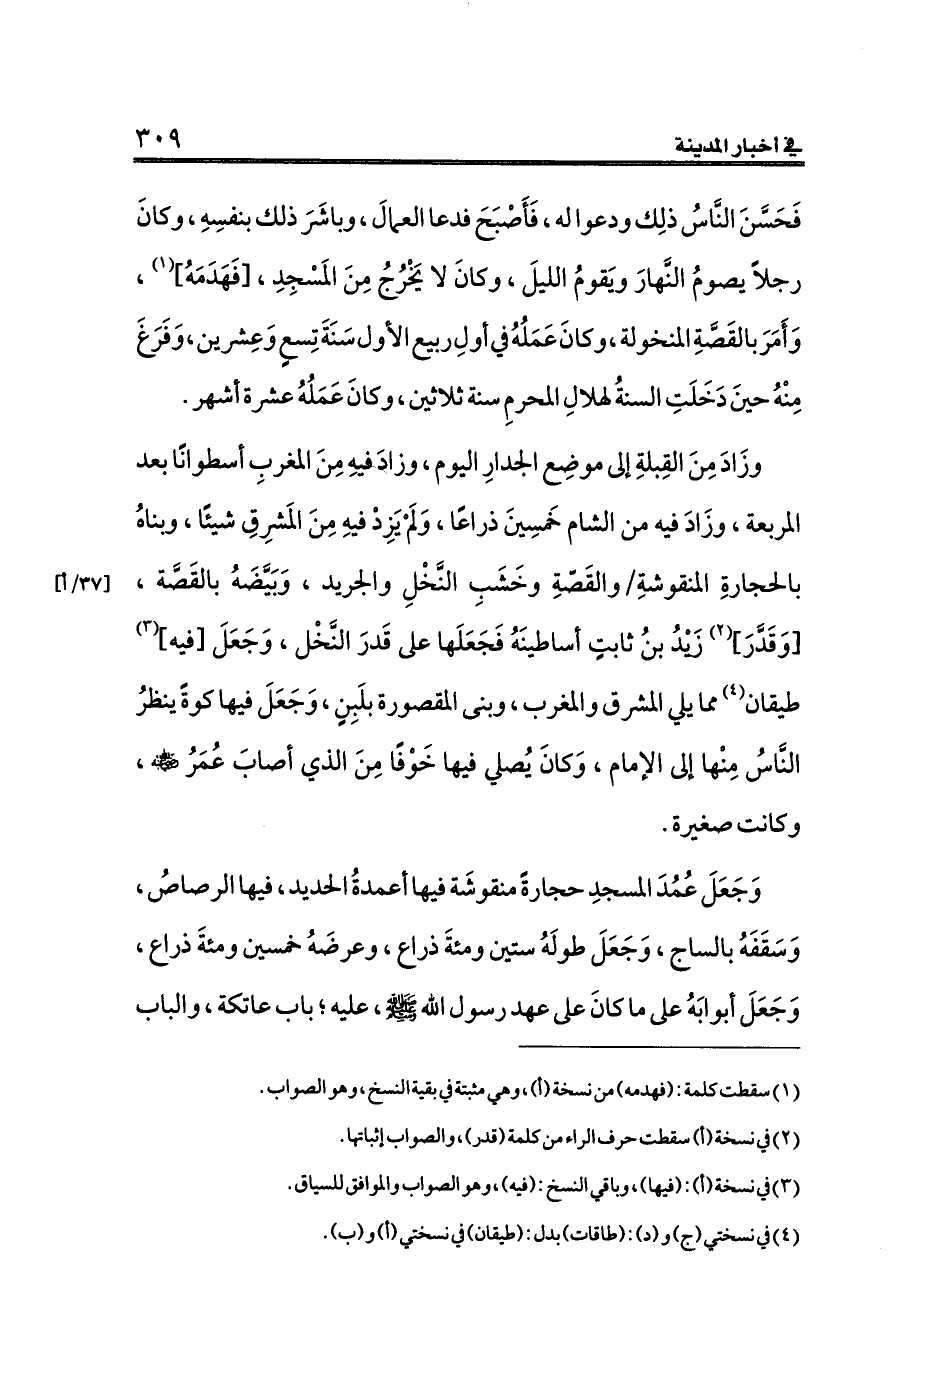 في أخبار المدينة
٣٠٩
فَحَسَّنَ النَّاسُ ذلِك ودعوا له ، فَأَصْبَحَ فدعا العمالَ ، وباشَرَ ذلك بنفسِهِ ، وكانَ
رجلاً يصومُ النَّهارَ ويَقومُ الليلَ ، وكانَ لا يَخْرُجُ مِنَ المَسْجِدِ ، [فَهَدَمَهُ](١) ،
وَأَمَرَ بالقَصَّةِ المنخولة ، وكانَ عَمَلُهُ في أولِ ربيع الأول سَنَةَ تِسعٍ وَعِشرين ، وَفَرَغَ
مِنْهُ حينَ دَخَلَتِ السنةُ لهلالِ المحرمِ سنة ثلاثين ، وكانَ عَمَلُهُ عشرة أشهر .
وزَادَ مِنَ القِبلةِ إلى موضِعِ الجدارِ اليوم ، وزادَ فيهِ مِنَ المغربِ أسطوانًا بعد
المربعة ، وزَادَ فيه من الشام خَمسِينَ ذراعًا ، وَلَمْ يَزِدْ فيهِ مِنَ المَشرِقِ شيئًا ، وبناهُ
بالحجارةِ المنقوشةِ/ والقَصّةِ وخَشَبِ النَّخْلِ والجريد ، وَبَيَّضَهُ بالقَصَّة ،
[٣٧/أ]
[وَقَدَّرَ](٢) زَيْدُ بنُ ثابتٍ أساطينَهُ فَجَعَلَها على قَدرَ النَّخْل ، وَجَعَلَ [فيه](٣)
طيقان(٤) مما يلي المشرق والمغرب ، وبنى المقصورة بلَبِنٍ ، وَجَعَلَ فيها كوةً ينظرُ
النَّاسُ مِنْها إلى الإمام ، وَكانَ يُصلي فيها خَوْفًا مِنَ الذي أصابَ عُمَرُ رضي الله عنه ،
وكانت صغيرة .
وَجَعَلَ عُمُدَ المسجدِ حجارةً منقوشَة فيها أعمدةُ الحديد ، فيها الرصاصُ ،
وَسَقَفَهُ بالساج ، وَجَعَلَ طولَهُ ستين ومئةَ ذراع ، وعرضَهُ خمسين ومئةَ ذراع ،
وَجَعَلَ أبوابَهُ على ما كانَ على عهد رسول الله ﷺ ، عليه ؛ باب عاتكة ، والباب
(١) سقطت كلمة : (فهدمه) من نسخة (أ) ، وهي مثبتة في بقية النسخ ، وهو الصواب .
(٢) في نسخة (أ) سقطت حرف الراء من كلمة (قدر) ، والصواب إثباتها .
(٣) في نسخة (أ) : (فيها) ، وباقي النسخ : (فيه) ، وهو الصواب والموافق للسياق .
(٤) في نسختي (ج) و (د) : (طاقات) بدل : (طيقان) في نسختي (أ) و (ب) .